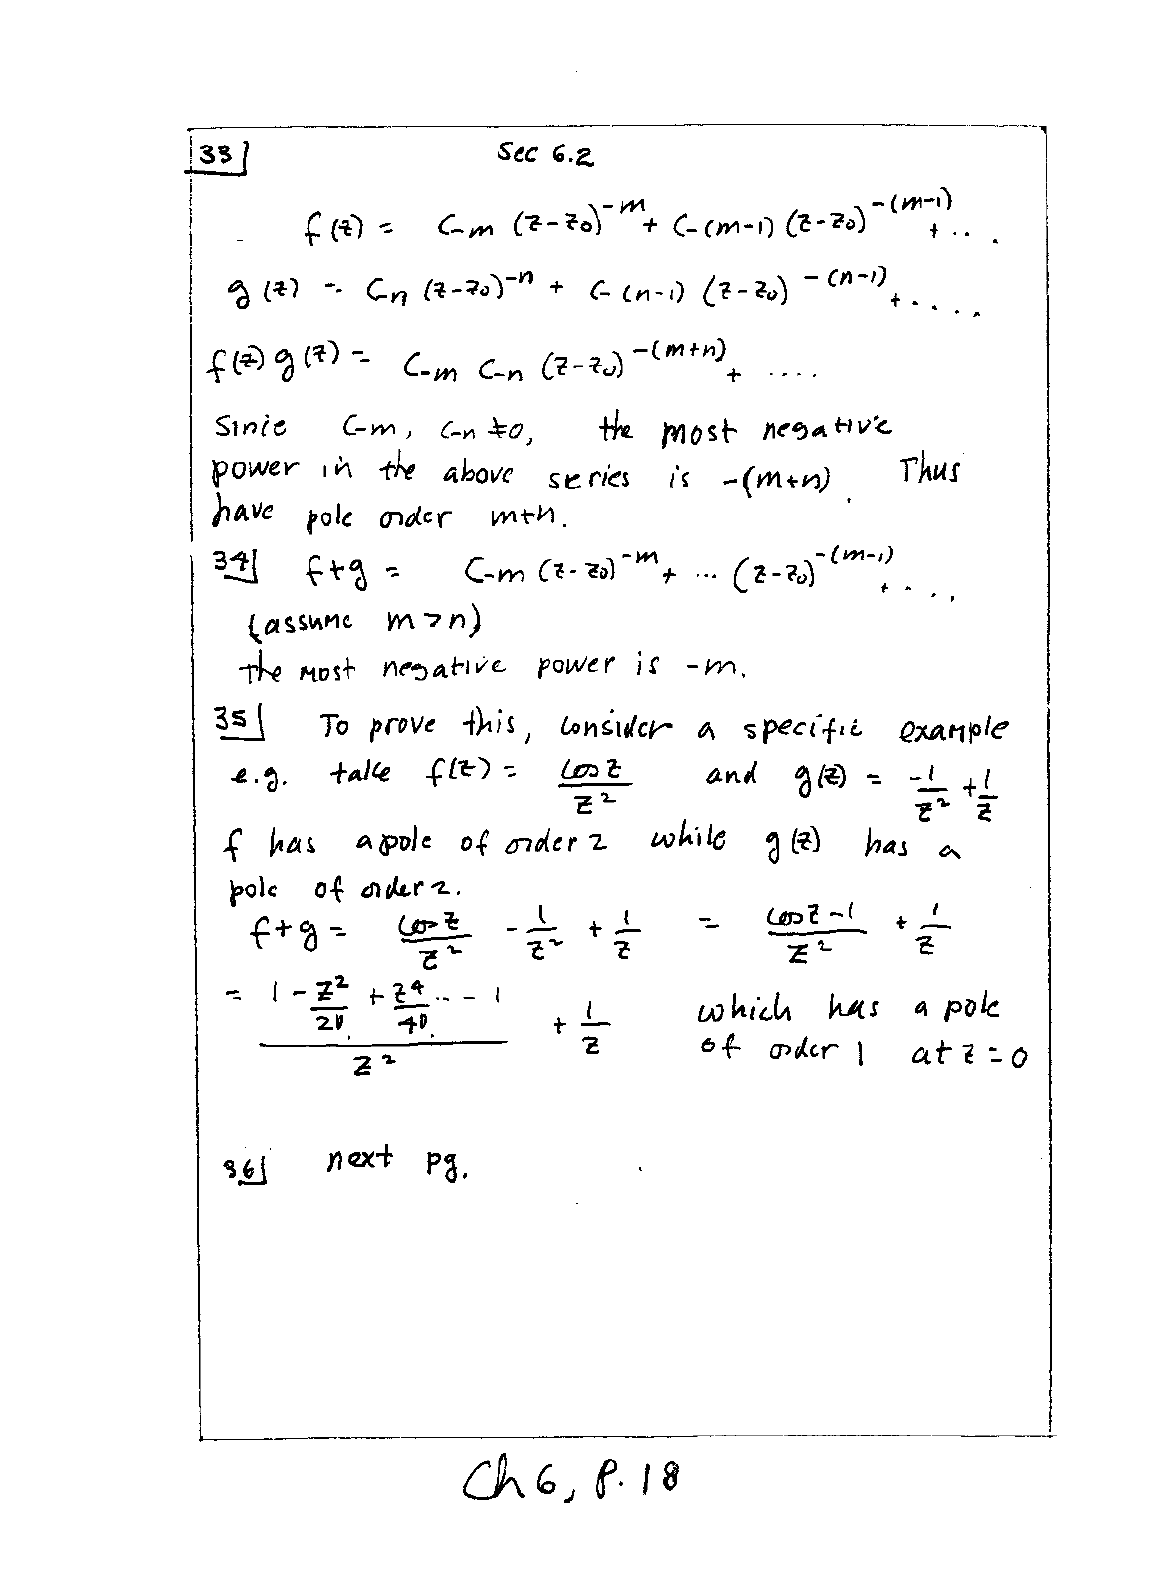 33 Sec 6.2
f(z) = C-m (z-z0)^-m + C-(m-1) (z-z0)^-(m-1) + ...
g(z) = Cn (z-z0)^-n + C-(n-1) (z-z0)^-(n-1) + ....
f(z) g(z) = C-m C-n (z-z0)^-(m+n) + ....
Since C-m, C-n ≠0, the most negative
power in the above series is -(m+n). Thus
have pole order m+n.
34 f+g = C-m (z-z0)^-m + ... (z-z0)^-(m-1) + ....
(assume m>n)
the most negative power is -m.
35 To prove this, consider a specific example
e.g. take f(z) = cos z / z^2 and g(z) = -1/z^2 + 1/z
f has a pole of order 2 while g(z) has a
pole of order 2.
f+g = cos z / z^2 - 1/z^2 + 1/z = (cos z - 1)/z^2 + 1/z
= (1 - z^2/2! + z^4/4! .. - 1)/z^2 + 1/z which has a pole
of order 1 at z=0
36 next pg.
Ch 6, p. 18